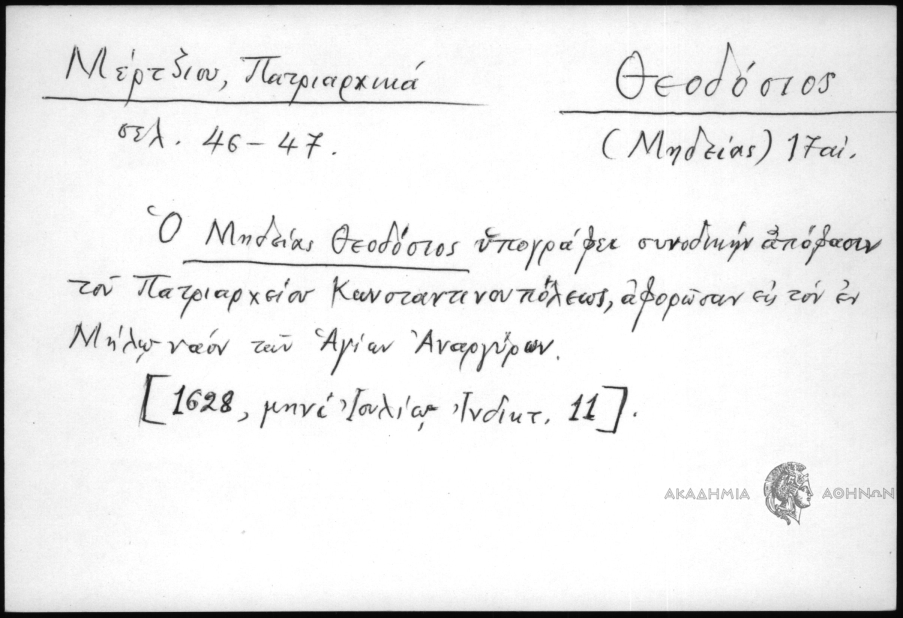 Μέρτζιου, Πατριαρχικά
σελ. 46-47.
Θεοδόσιος
(Μηδείας) 17 αἰ.
Ὁ Μηδείας Θεοδόσιος ὑπογράφει συνοδικήν ἀπόφασιν
τοῦ Πατριαρχείου Κωνσταντινουπόλεως, ἀφορῶσαν εἰς τόν ἐν
Μήλῳ ναόν τῶν Ἁγίων Ἀναργύρων.
[1628, μηνί Ἰουλίῳ Ἰνδικτ. 11].
ΑΚΑΔΗΜΙΑ ΑΘΗΝΩΝ